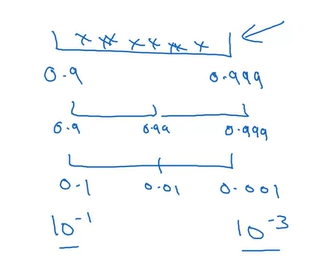 x x x x x x x x
0.9 0.999
0.9 0.99 0.999
0.1 0.01 0.001
10⁻¹ 10⁻³